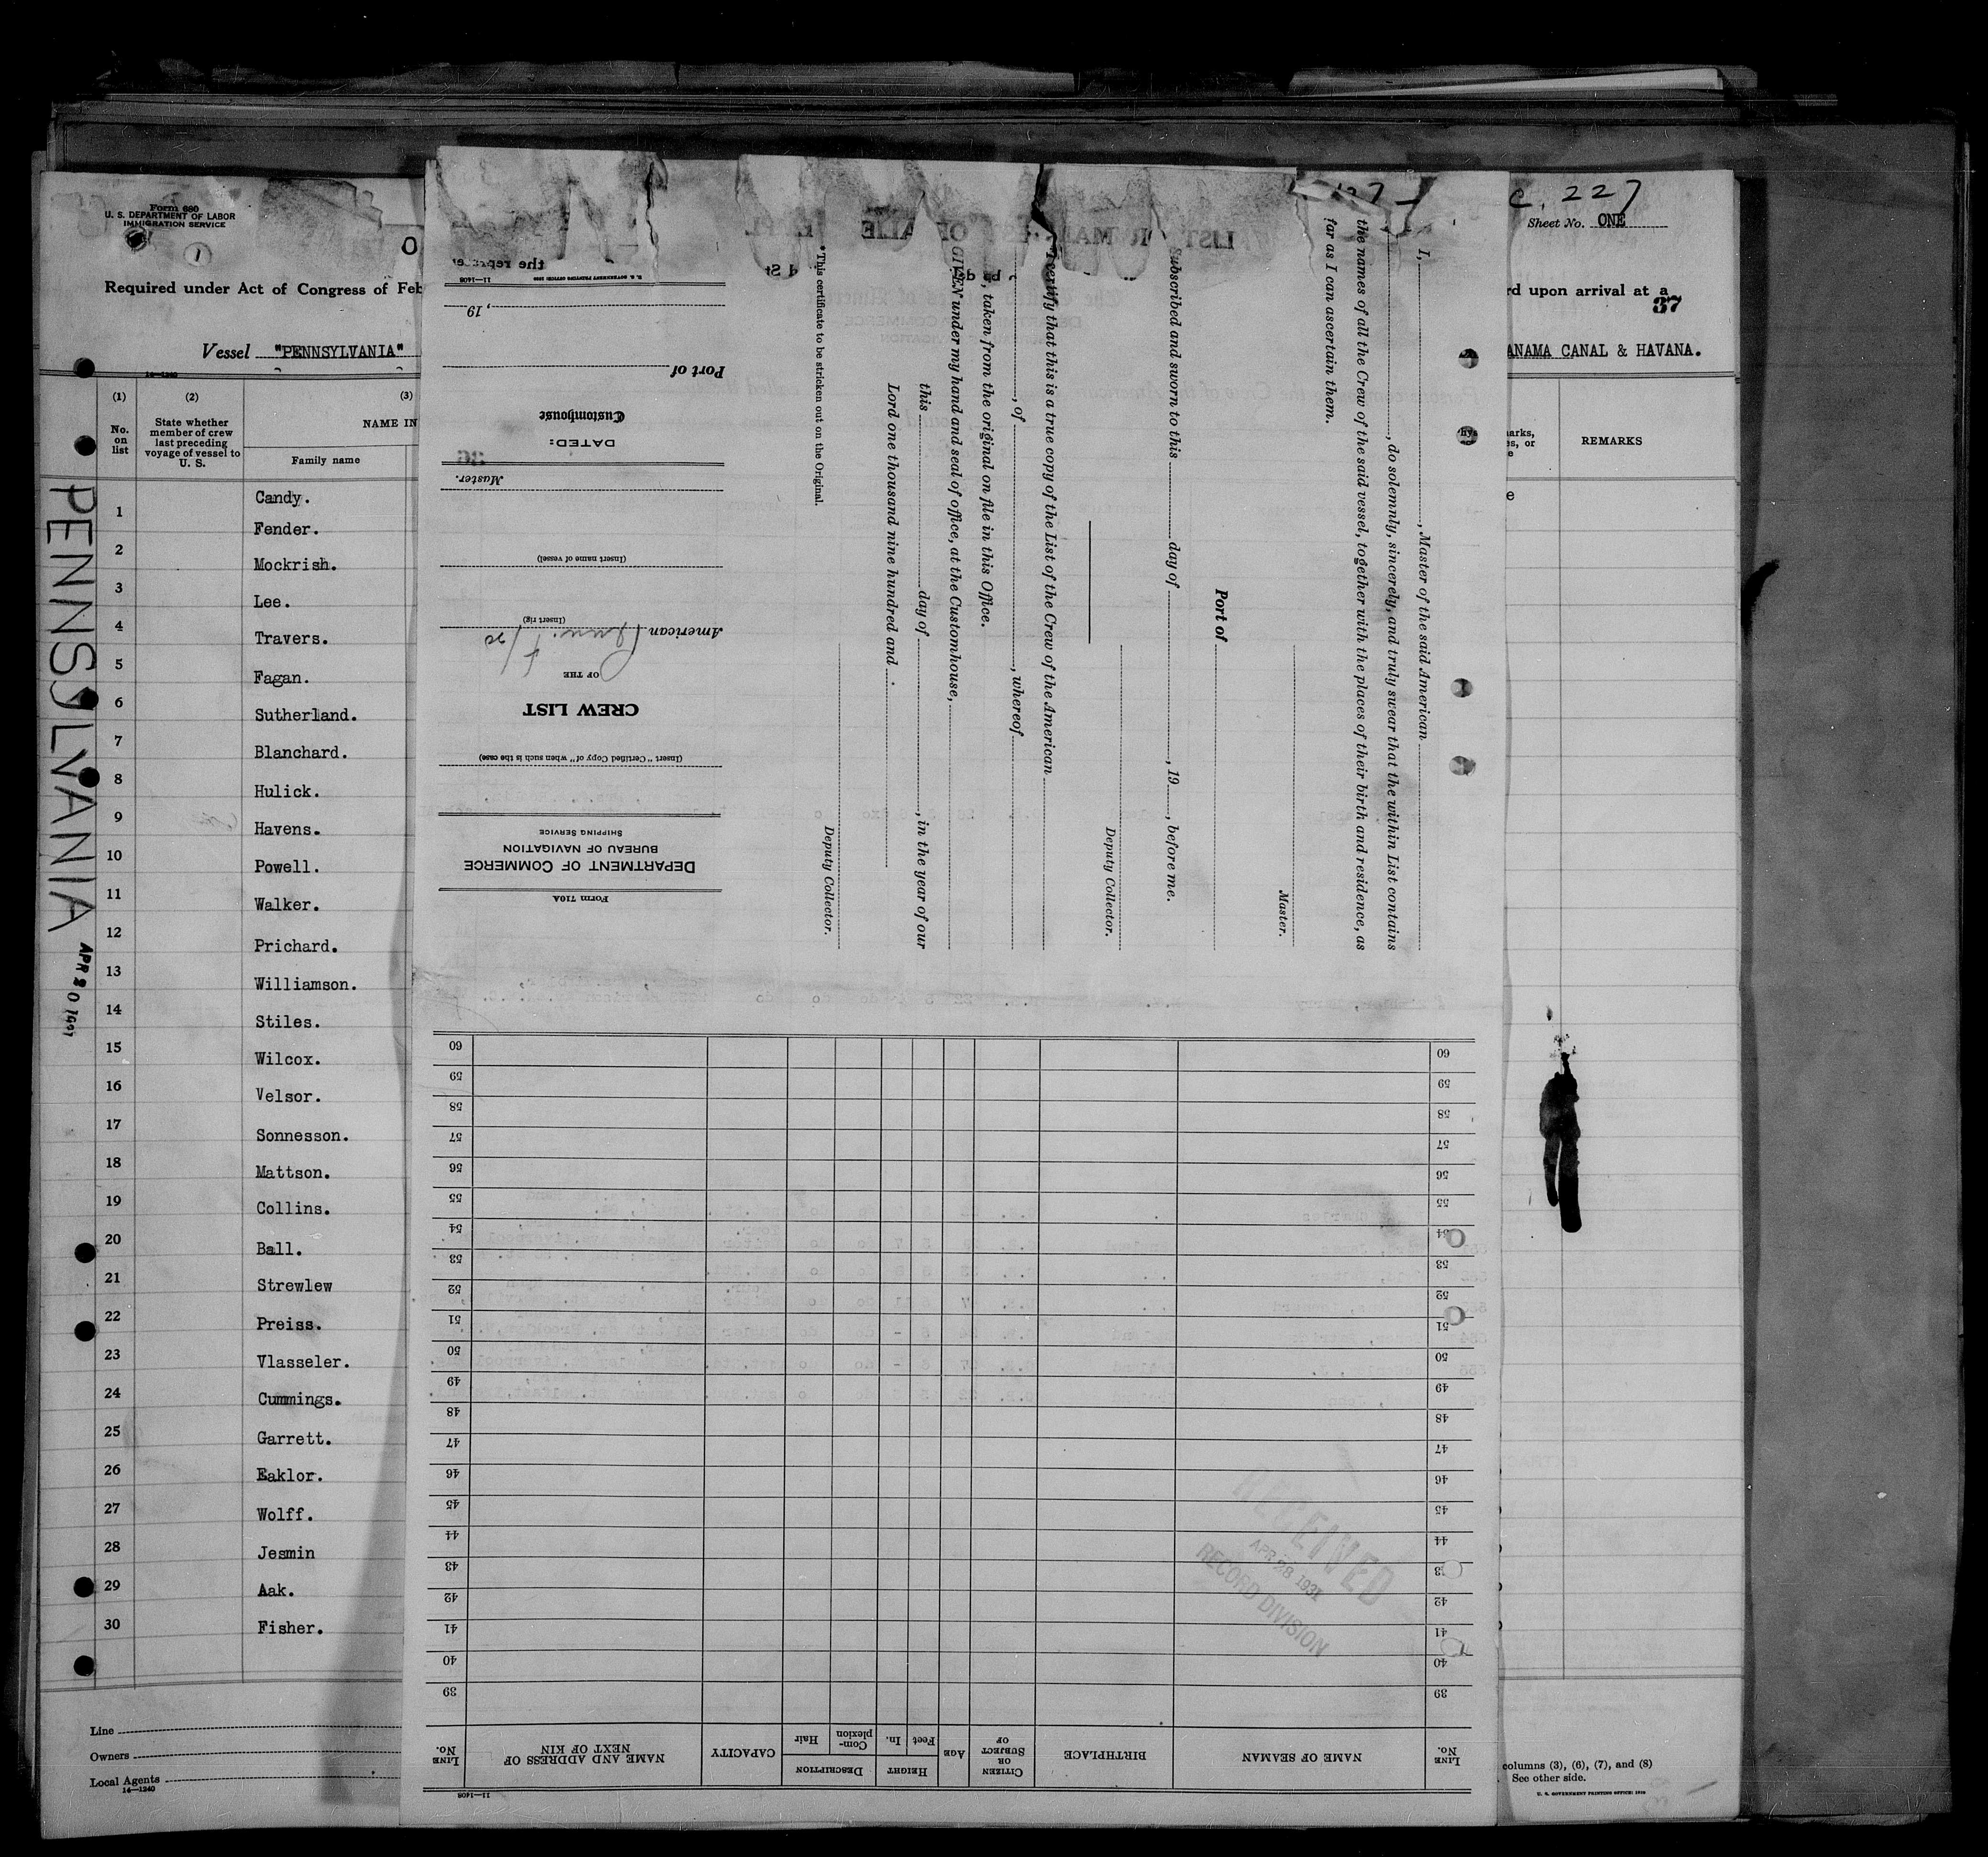 Form 680
U. S. DEPARTMENT OF LABOR
IMMIGRATION SERVICE
1
Required under Act of Congress of Feb
Vessel "PENNSYLVANIA"
14—1240
(1)
(2)
(3)
No. on list
State whether member of crew last preceding voyage of vessel to U. S.
NAME IN
Family name
PENNSYLVANIA
APR 20
1 Candy.
2 Fender.
3 Mockrish.
4 Lee.
5 Travers.
6 Fagan.
7 Sutherland.
8 Blanchard.
9 Hulick.
10 Havens.
11 Powell.
12 Walker.
13 Prichard.
14 Williamson.
15 Stiles.
16 Wilcox.
17 Velsor.
18 Sonnesson.
19 Mattson.
20 Collins.
21 Ball.
22 Strewlew
23 Preiss.
24 Vlasseler.
25 Cummings.
26 Garrett.
27 Eaklor.
28 Wolff.
29 Jesmin
30 Aak.
Fisher.
Line
Owners
Local Agents
14—1240
227
Sheet No. ONE
rd upon arrival at a
37
ANAMA CANAL & HAVANA.
REMARKS
columns (3), (6), (7), and (8)
See other side.
U. S. GOVERNMENT PRINTING OFFICE: 1930
I, , Master of the said American
, do solemnly, sincerely, and truly swear that the within List contains
the names of all the Crew of the said vessel, together with the places of their birth and residence, as
far as I can ascertain them.
Master.
Port of
Subscribed and sworn to this day of , 19 , before me.
Deputy Collector.
*I certify that this is a true copy of the List of the Crew of the American
, of , whereof
, taken from the original on file in this Office.
GIVEN under my hand and seal of office, at the Customhouse,
this day of , in the year of our
Lord one thousand nine hundred and .
Deputy Collector.
*This certificate to be stricken out on the Original.
Form 710A
DEPARTMENT OF COMMERCE
BUREAU OF NAVIGATION
SHIPPING SERVICE
(Insert "Certified Copy of" when such is the case)
CREW LIST
OF THE
American
(Insert rig)
(Insert name of vessel)
Master.
DATED:
Customhouse
Port of
, 19
11—1408
LINE No.
NAME OF SEAMAN
BIRTHPLACE
CITIZEN OR SUBJECT OF
AGE
HEIGHT
Feet
In.
DESCRIPTION
Complexion
Hair
CAPACITY
NAME AND ADDRESS OF NEXT OF KIN
LINE No.
39
40
41
42
43
44
45
46
47
48
49
50
51
52
53
54
55
56
57
58
59
60
11—1408
RECEIVED
APR 28 1931
RECORD DIVISION